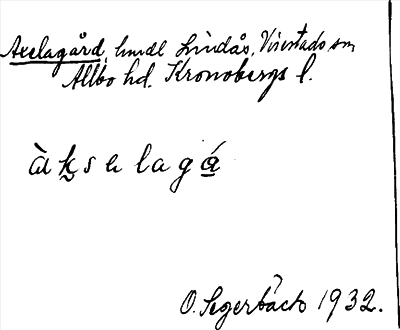 Axelagård, hmdl Lindås, Virestads sn
Allbo hd. Kronobergs l.
àkselagá
O. Segerbäck 1932.